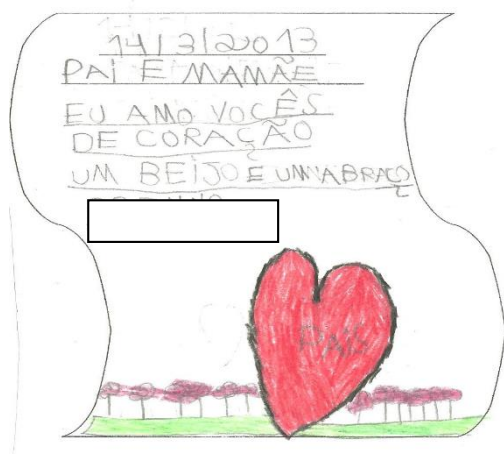 14/3/2013
PAI E MAMÃE
EU AMO VOCÊS
DE CORAÇÃO
UM BEIJO E UM ABRAÇO
PAIS